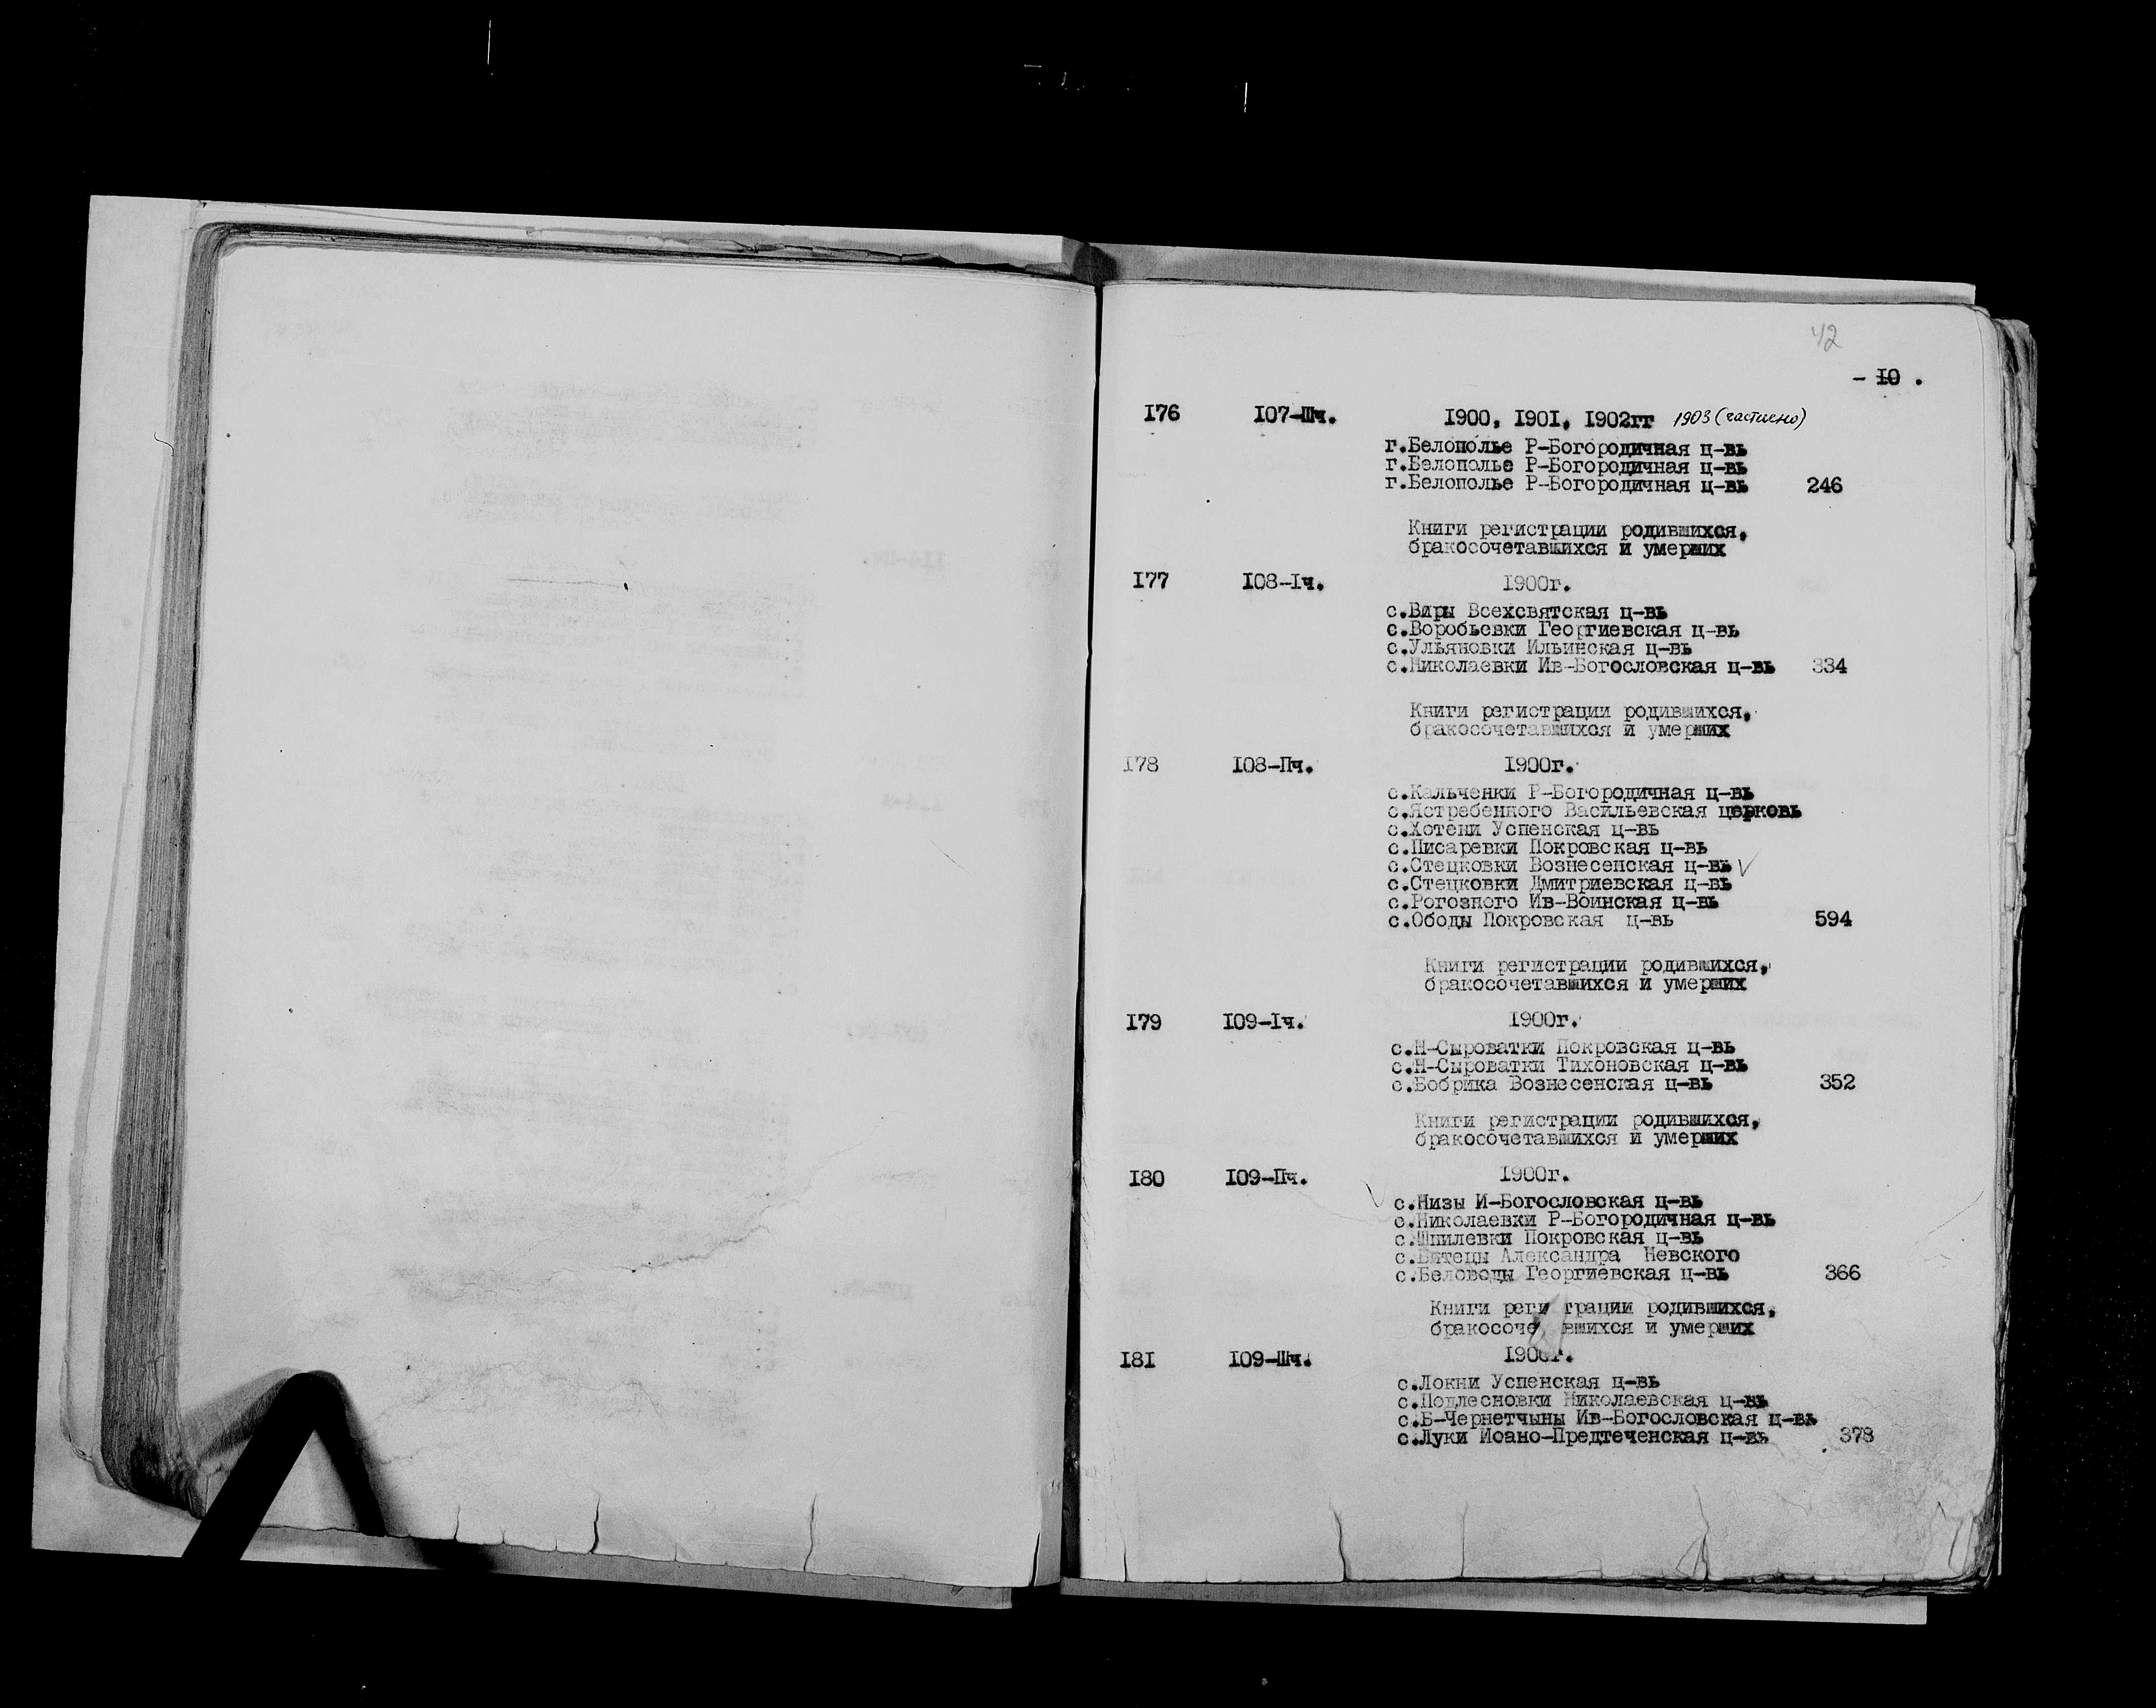 42
- 10 .
I76 I07-Шч. I900, I90I, I902гг 1903 (частично)
г.Белополье Р-Богородичная ц-вь
г.Белополье Р-Богородичная ц-вь
г.Белополье Р-Богородичная ц-вь 246
Книги регистрации родившихся,
бракосочетавшихся и умерших
I77 I08-Iч. I900г.
с.Виры Всехсвятская ц-вь
с.Воробьевки Георгиевская ц-вь
с.Ульяновки Ильинская ц-вь
с.Николаевки Ив-Богословская ц-вь 334
Книги регистрации родившихся,
бракосочетавшихся и умерших
I78 I08-Пч. I900г.
с.Кальченки Р-Богородичная ц-вь
с.Ястребенного Васильевская церковь
с.Хотени Успенская ц-вь
с.Писаревки Покровская ц-вь
с.Стецковки Вознесенская ц-вь V
с.Стецковки Дмитриевская ц-вь
с.Рогозного Ив-Воинская ц-вь
с.Ободы Покровская ц-вь 594
Книги регистрации родившихся,
бракосочетавшихся и умерших
I79 I09-Iч. I900г.
с.Н-Сыроватки Покровская ц-вь
с.Н-Сыроватки Тихоновская ц-вь
с.Бобрика Вознесенская ц-вь 352
Книги регистрации родившихся,
бракосочетавшихся и умерших
I80 I09-Пч. I900г.
с.Низы И-Богословская ц-вь
с.Николаевки Р-Богородичная ц-вь
с.Шпилевки Покровская ц-вь
с.Битецы Александра Невского
с.Беловоды Георгиевская ц-вь 366
Книги реги трации родившихся,
бракосоче вшихся и умерших
I8I I09-Шч. I900г.
с.Локни Успенская ц-вь
с.Подлесновки Николаевская ц-вь
с.Б-Чернетчыны Ив-Богословская ц-вь
с.Луки Иоано-Предтеченская ц-вь 378